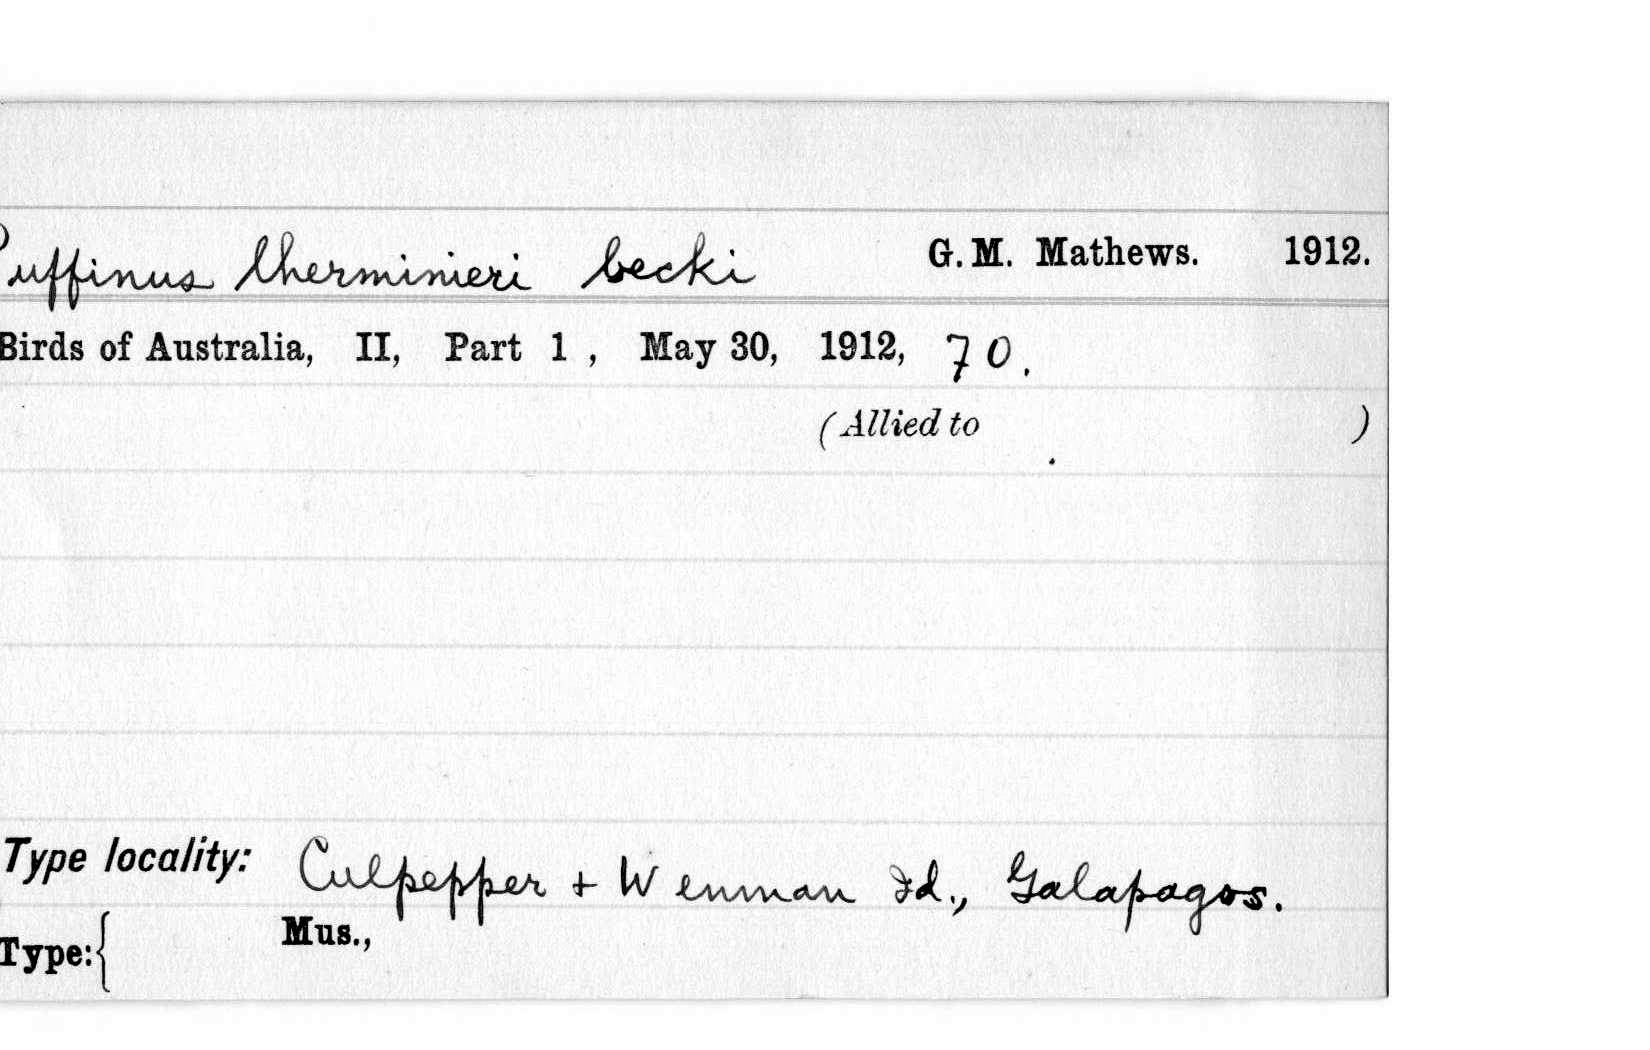 Puffinus lherminieri becki G. M. Mathews. 1912.
Birds of Australia, II, Part 1, May 30, 1912, 70.
(Allied to )
Type locality: Culpepper + Wenman Id., Galapagos.
Type:{ Mus.,